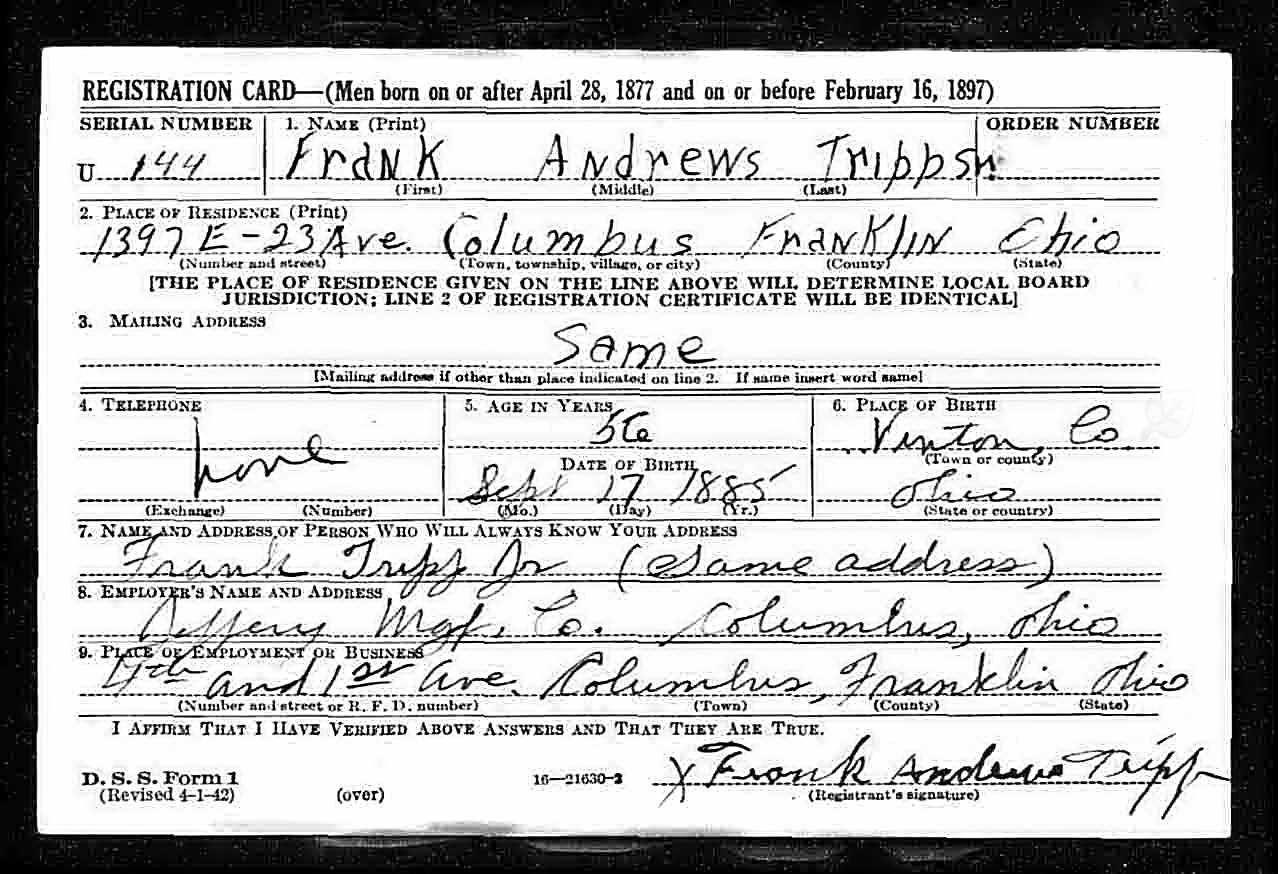 REGISTRATION CARD—(Men born on or after April 28, 1877 and on or before February 16, 1897)
SERIAL NUMBER 1. NAME (Print) ORDER NUMBER
U 144 Frank Andrews Tripp Sr.
(First) (Middle) (Last)
2. PLACE OF RESIDENCE (Print)
1397 E-23 Ave. Columbus Franklin Ohio
(Number and street) (Town, township, village, or city) (County) (State)
[THE PLACE OF RESIDENCE GIVEN ON THE LINE ABOVE WILL DETERMINE LOCAL BOARD
JURISDICTION; LINE 2 OF REGISTRATION CERTIFICATE WILL BE IDENTICAL]
3. MAILING ADDRESS
Same
[Mailing address if other than place indicated on line 2. If same insert word same]
4. TELEPHONE 5. AGE IN YEARS 6. PLACE OF BIRTH
none 56 Vinton Co
DATE OF BIRTH (Town or county)
Sept 17 1885 Ohio
(Exchange) (Number) (Mo.) (Day) (Yr.) (State or country)
7. NAME AND ADDRESS OF PERSON WHO WILL ALWAYS KNOW YOUR ADDRESS
Frank Tripp Jr (Same address)
8. EMPLOYER'S NAME AND ADDRESS
Jeffery Mgf. Co. Columbus, Ohio
9. PLACE OF EMPLOYMENT OR BUSINESS
4th and 1st Ave. Columbus, Franklin Ohio
(Number and street or R. F. D. number) (Town) (County) (State)
I AFFIRM THAT I HAVE VERIFIED ABOVE ANSWERS AND THAT THEY ARE TRUE.
X Frank Andrews Tripp
D. S. S. Form 1 16—21630-2
(Revised 4-1-42) (over) (Registrant's signature)